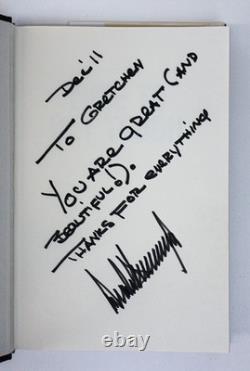 Dec 11
TO GRETCHEN
YOU ARE GREAT (AND
BEAUTIFUL!).
THANKS FOR EVERYTHING
ebay.com